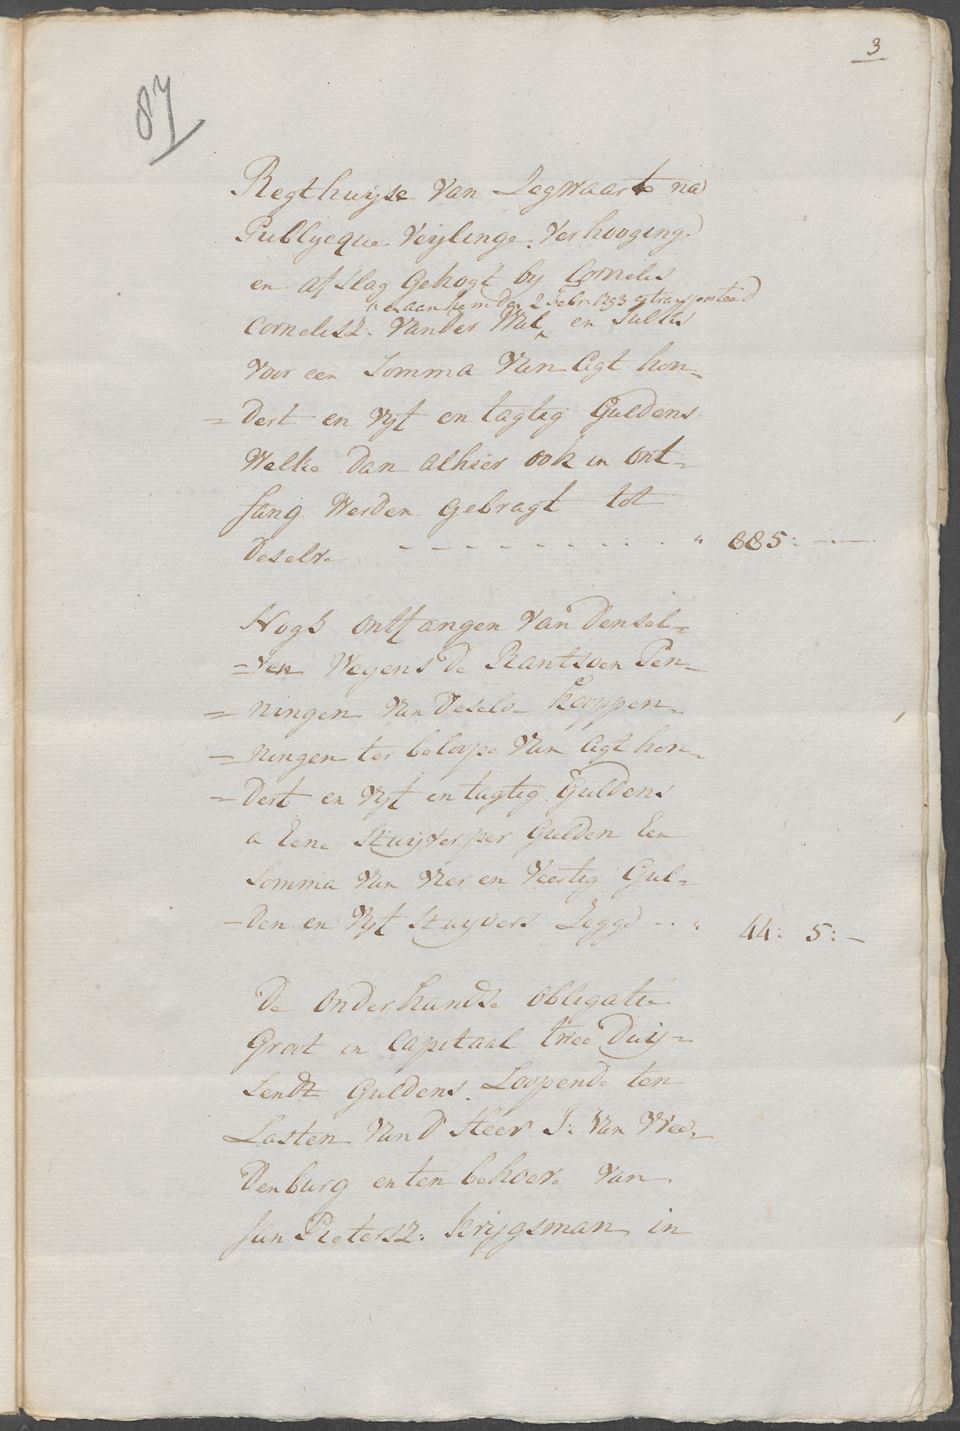 3
87
Regthuijse van Zegwaart na
Publycque Veijlinge Verhooging
en afslag gekogt by Cornelis
en aan hem den 2 Febr: 1793 getransporteerd
Cornelisz: vander Wal en sulks
voor een Somma van Agt hon-
= dert en vyf en tagtig Guldens
welke dan alhier ook in ont-
fang werden gebragt tot
deselve - - - - - - - - - - " 885: -
Nogh ontfangen van densel-
= ven wegens de Rantsoen Pen-
= ningen van deselve kooppen-
= ningen ter beloope van Agt hon-
= dert en vyf en tagtig Guldens
a Eene Stuyver per Gulden Een
Somma van vier en veertig Gul-
- den en vyf Stuyvers Zegge - - " 44: 5: -
De onderhandse obligatie
Groot in Capitaal twee Duij-
sendt Guldens Loopende ten
Lasten van d'Heer J: van Vree-
denburg en ten behoeve van
Jan Pietersz: Krijgsman in